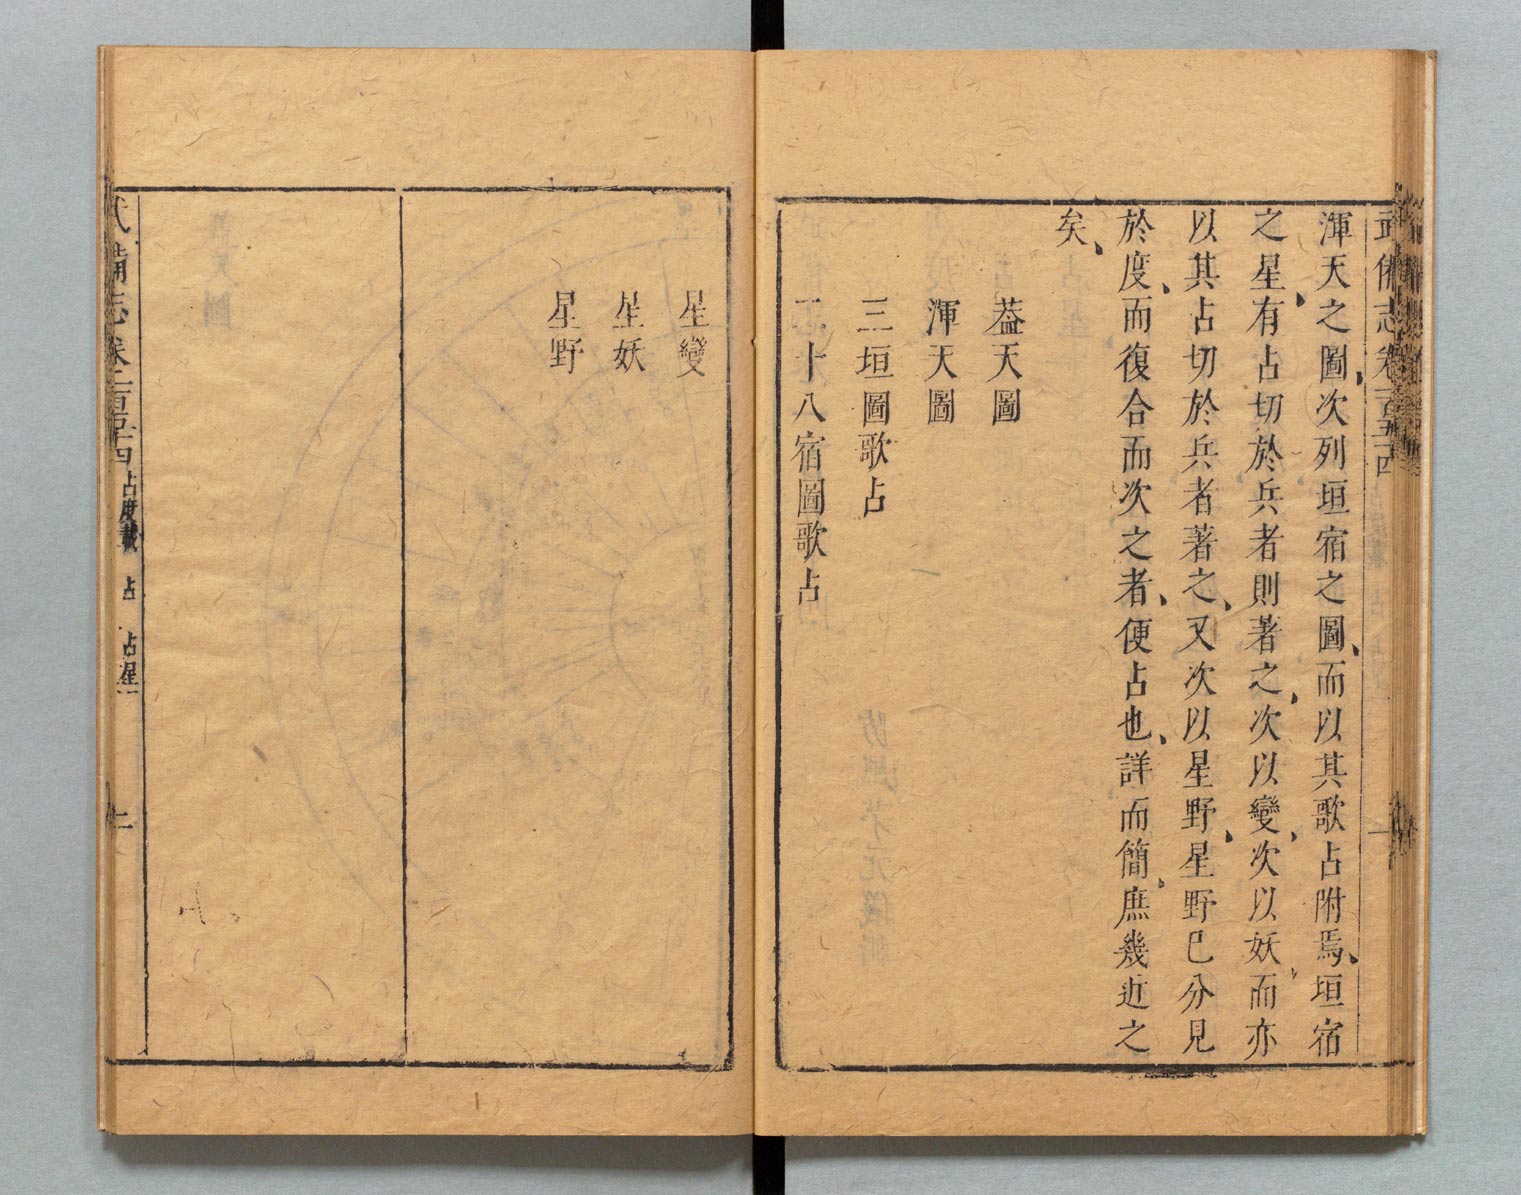 武備志卷一百五十四
渾天之圖、次列垣宿之圖、而以其歌占附焉、垣宿
之星、有占切於兵者則著之、次以變、次以妖、而亦
以其占切於兵者著之、又次以星野、星野巳分見
於度、而復合而次之者、便占也、詳而簡、庶幾近之
矣、
葢天圖
渾天圖
三垣圖歌占
二十八宿圖歌占
星變
星妖
星野
武備志卷一百五十四 占度載 占 占星一 二